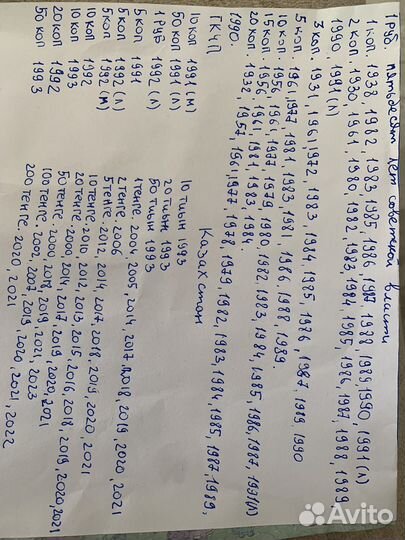 1 руб. пятьдесят лет советской власти
1 коп. 1930, 1982, 1983, 1985, 1986, 1987, 1988, 1989, 1990, 1991 (л)
2 коп. 1930, 1961, 1980, 1982, 1983, 1984, 1985, 1986, 1987, 1988, 1989
1990, 1991 (л)
3 коп. 1931, 1961, 1972, 1983, 1984, 1985, 1986, 1987, 1989, 1990
5 коп. 1961, 1977, 1981, 1983, 1981, 1986, 1988, 1989.
10 коп. 1956, 1961, 1977, 1979, 1980, 1982, 1983, 1984, 1985, 1986, 1987, 1991 (л)
15 коп. 1956, 1961, 1981, 1983, 1984.
20 коп. 1932, 1957, 1961, 1977, 1978, 1979, 1982, 1983, 1984, 1985, 1987, 1989,
1990.
ГКЧП
10 коп 1991 (м)
50 коп 1991 (л)
1 руб 1992 (л)
5 коп 1991
5 коп 1992 (л)
5 коп 1992 (м)
10 коп 1992
10 коп 1993
20 коп 1992
50 коп 1993
Казахстан
10 тиын 1993
20 тиын 1993
50 тиын 1993
1 тенге. 2004, 2005, 2014, 2017, 2018, 2019, 2020, 2021
2 тенге. 2006
5 тенге. 2012, 2014, 2017, 2018, 2019, 2020, 2021
10 тенге. 2010, 2012, 2013, 2015, 2016, 2018, 2019, 2020, 2021
20 тенге. 2000, 2014, 2017, 2019, 2020, 2021
50 тенге. 2000, 2018, 2019, 2021, 2023
100 тенге. 2002, 2007, 2019, 2020, 2021, 2022
200 тенге. 2020, 2021
Avito